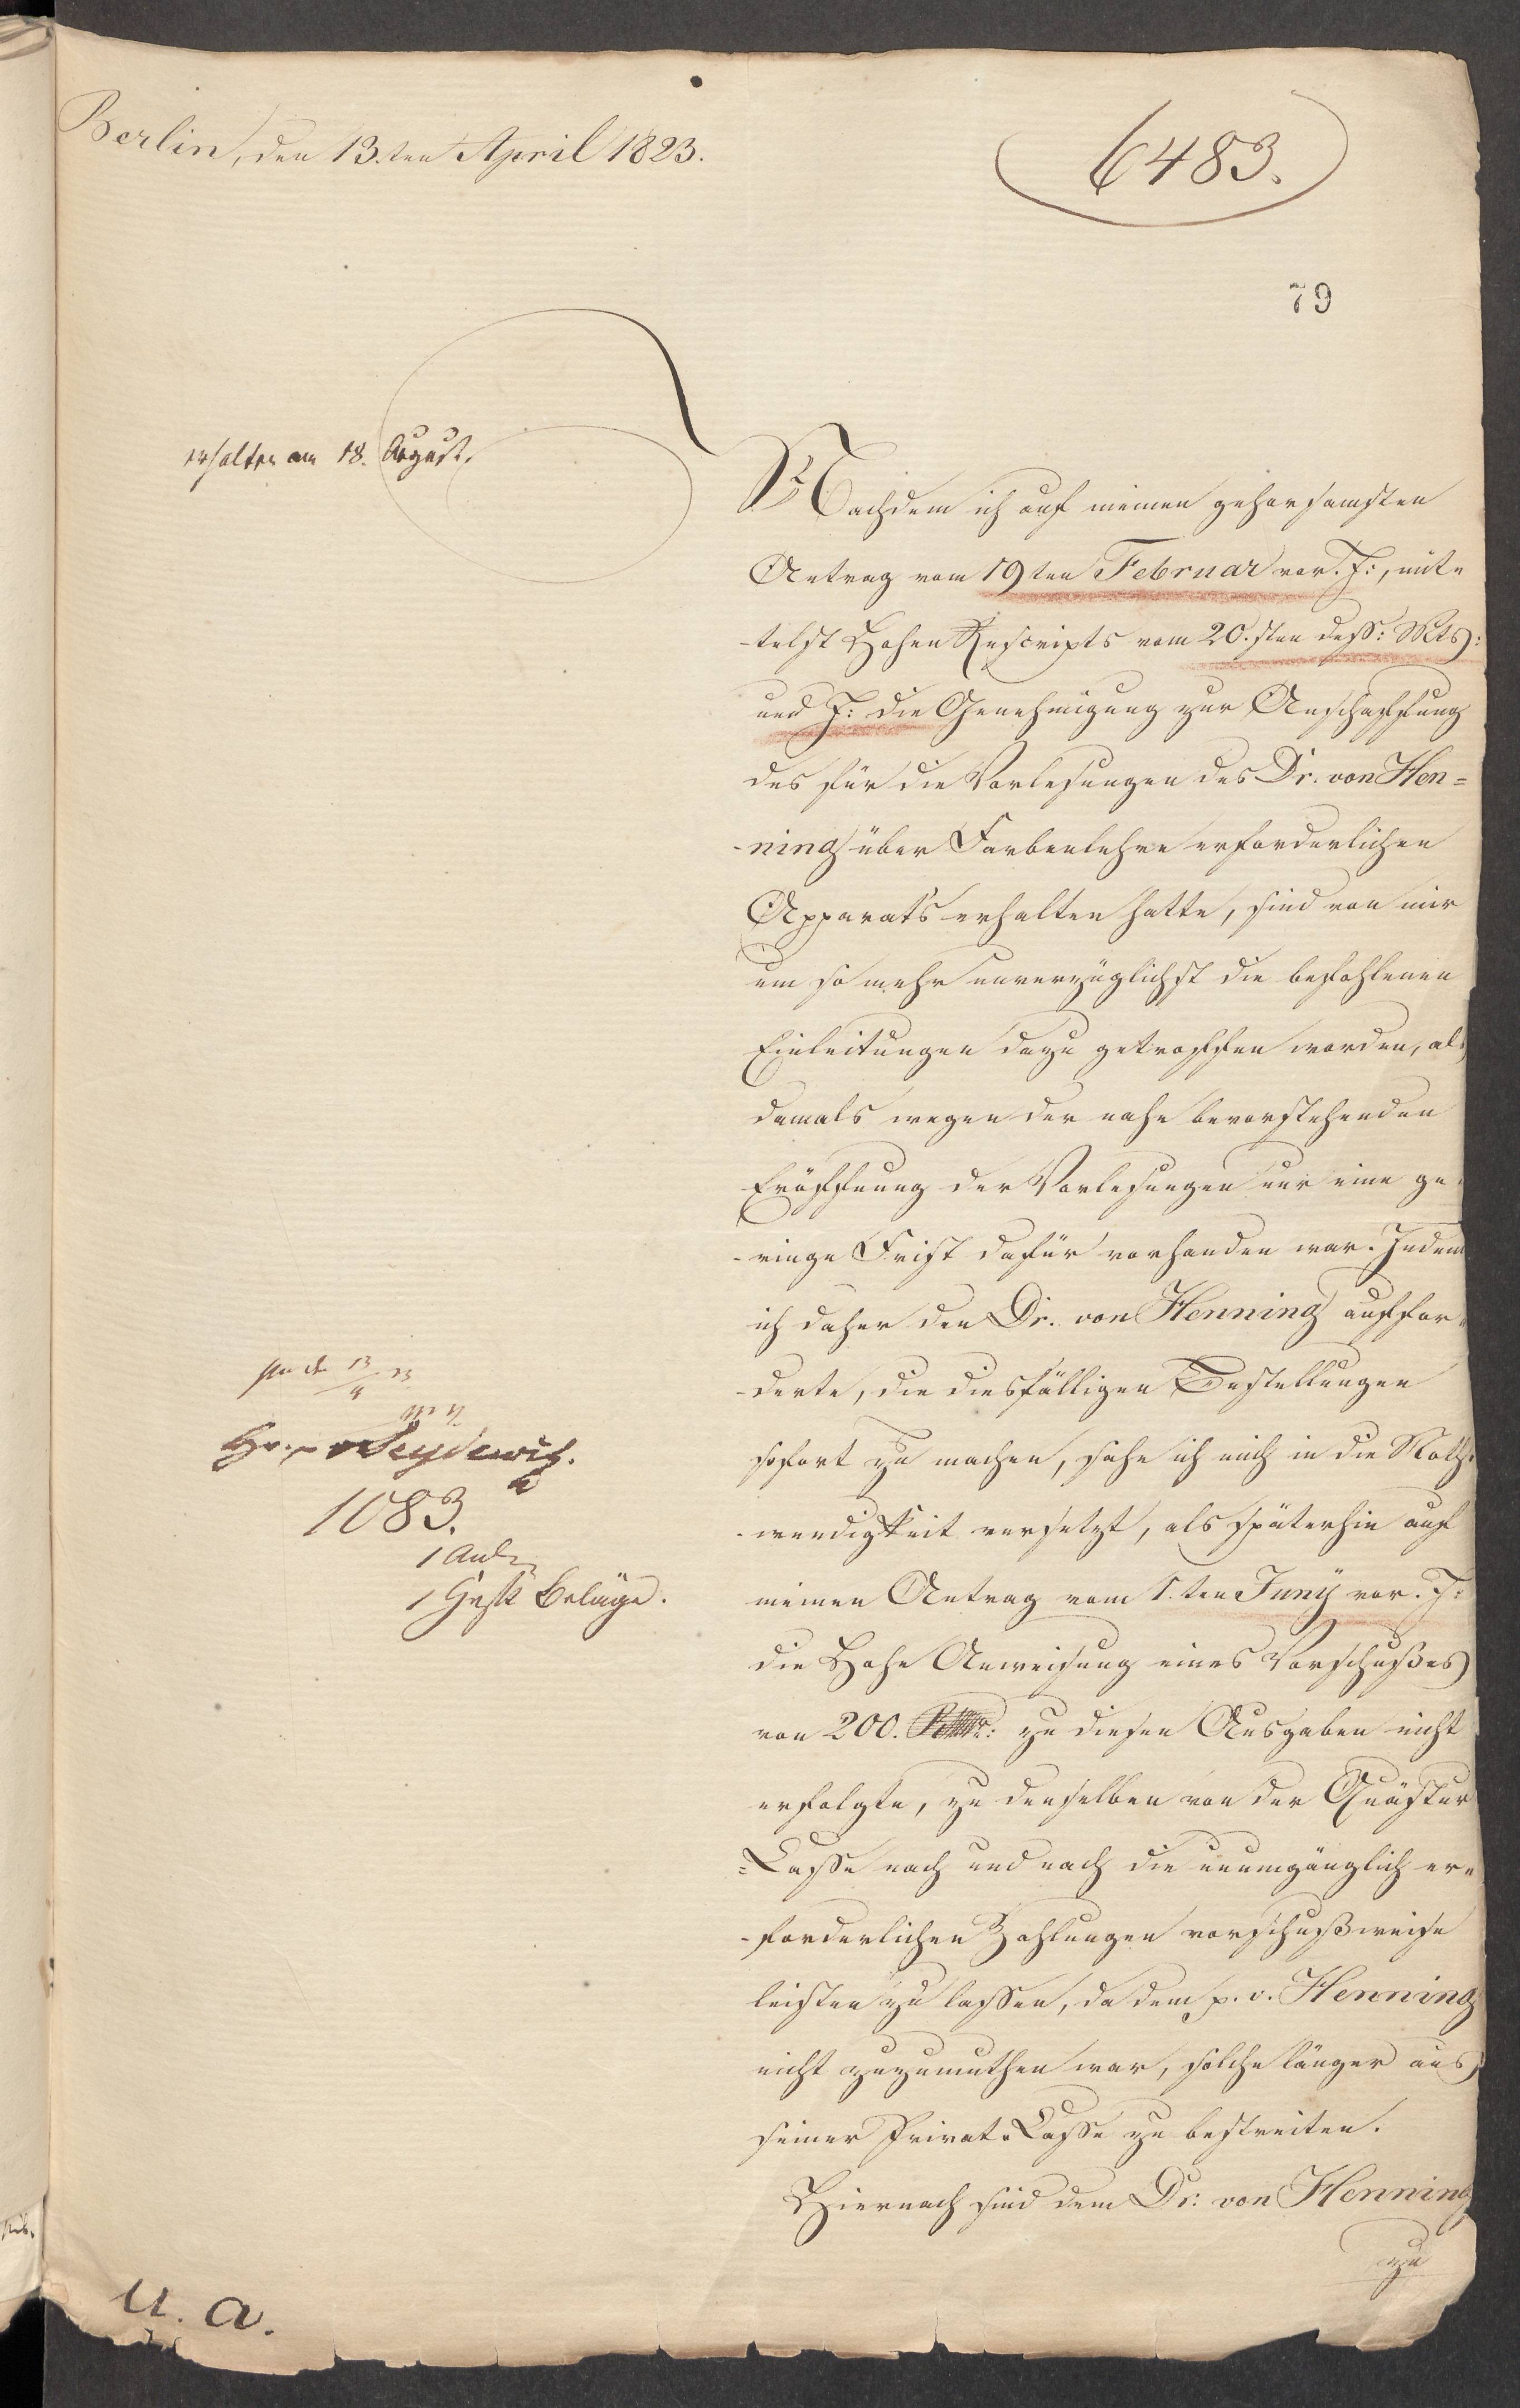 Berlin, den 13.ten April 1823.
6483.
79
erhalten am 18. August.
Nachdem ich auf meinen gehorsamsten
Antrag vom 19ten Februar vor. J:, mit-
-telst Hohen Rescripts vom 20.sten dess: Mts:
und J: die Genehmigung zur Anschaffung
des für die Vorlesungen des Dr. von Hen=
-ning über Farbenlehre erforderlichen
Apparats erhalten hatte, sind von mir
um so mehr unverzüglichst die befohlenen
Einleitungen dazu getroffen worden, als
damals wegen der nahe bevorstehenden
Eröffnung der Vorlesungen nur eine ge-
-ringe Frist dafür vorhanden war. Indem
ich daher den Dr. von Henning auffor-
-derte, die diesfälligen Bestellungen
sofort zu machen, sahe ich mich in die Noth-
-wendigkeit versetzt, als späterhin auf
meinen Antrag vom 1.ten Juny vor. J:
die Hohe Anweisung eines Vorschußes
von 200. zu diesen Ausgaben nicht
erfolgte, zu denselben von der Quästur
=Casse nach und nach die unumgänglich er-
-forderlichen Zahlungen vorschußweise
leisten zu lassen, da dem p. v. Henning
nicht zuzumuthen war, solche länger aus
seiner Privat-Casse zu bestreiten.
Hiernach sind dem Dr: von Henning
zu
13/4 23
Hr. v Seydewitz.
1083.
1 Anl
1 Heft Beläge.
u. a.